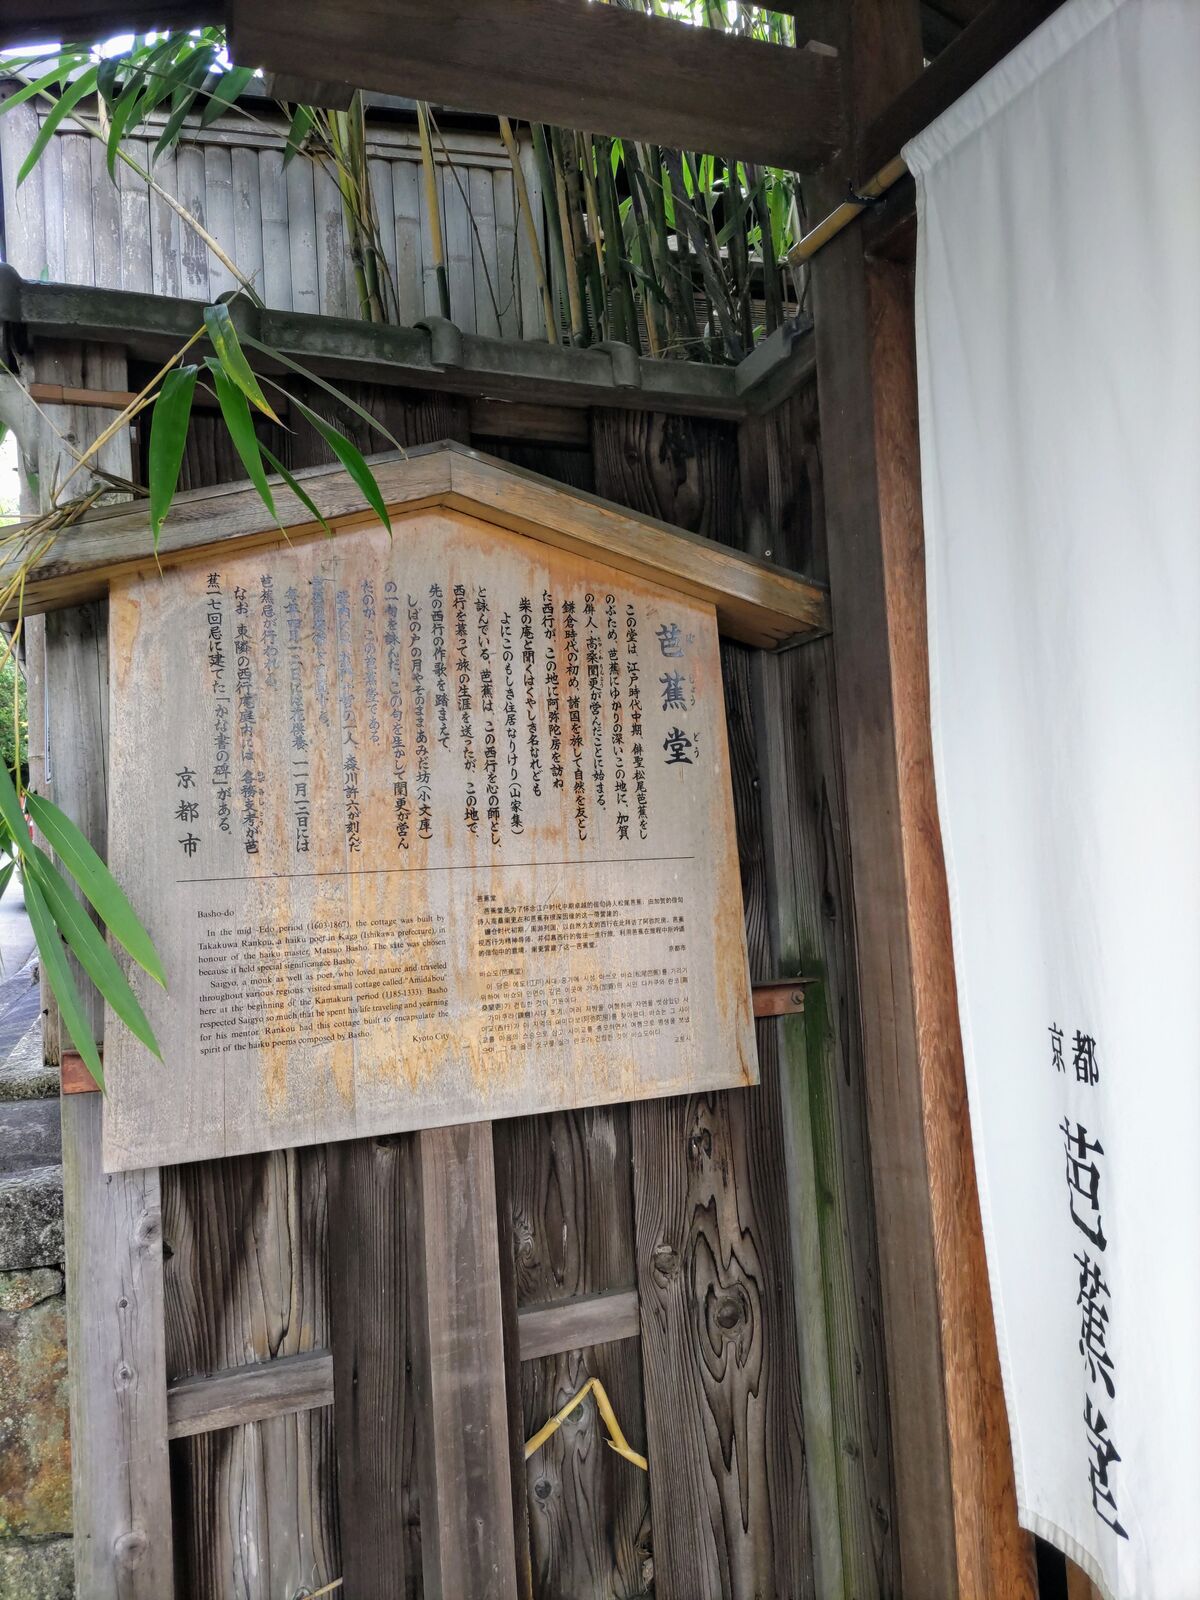 芭蕉堂
ばしょうどう
この堂は、江戸時代中期、俳聖松尾芭蕉をし
のぶため、芭蕉にゆかりの深いこの地に、加賀
の俳人・高桑闌更が営んだことに始まる。
鎌倉時代の初め、諸国を旅して自然を友とし
た西行が、この地に阿弥陀房を訪ね、
柴の庵と聞くはくやしき名なれども
よにこのもしき住居なりけり(山家集)
と詠んでいる。芭蕉は、この西行を心の師とし、
西行を慕って旅の生涯を送ったが、この地で、
先の西行の作歌を踏まえて、
しばの戸の月やそのままあみだ坊(小文庫)
の一句を詠んだ。この句を生かして闌更が営ん
だのが、この芭蕉堂である。
の一人、森川許六が刻んだ
毎年四月一二日には花供養、一一月一二日には
芭蕉忌が行われる。
なお、東隣の西行庵庭内には、各務支考が芭
蕉一七回忌に建てた「かな書の碑」がある。
京都市
Basho-do
In the mid -Edo period (1603-1867), the cottage was built by
Takakuwa Rankou, a haiku poet in Kaga (Ishikawa prefecture), in
honour of the haiku master, Matsuo Basho. The site was chosen
because it held special significanace Basho.
Saigyo, a monk as well as poet, who loved nature and traveled
throughout various regions, visited small cottage called "Amidabou"
here at the beginning of the Kamakura period (1185-1333). Basho
respected Saigyo so much that he spent his life traveling and yearning
for his mentor. Rankou had this cottage built to encapsulate the
spirit of the haiku poems composed by Basho.
Kyoto City
芭蕉堂
芭蕉堂是为了怀念江户时代中期卓越的俳句诗人松尾芭蕉，由加贺的俳句
诗人高桑阑更在和芭蕉有很深因缘的这一带营建的。
镰仓时代初期，周游列国、以自然为友的西行在此拜访了阿弥陀房。芭蕉
视西行为精神导师，
的俳句中的意境，阑更营建了这一芭蕉堂。
京都市
바쇼도(芭蕉堂)
교토시
京都
芭蕉堂